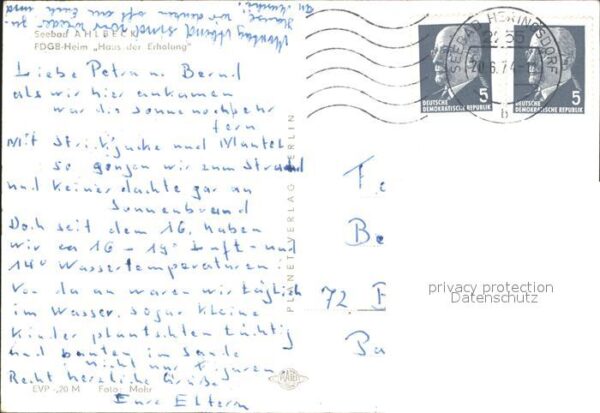 Montag Abend sind
wieder zu
Hause, wir denken oft an Euch und
Seebad AHLBECK
FDGB-Heim „Haus der Erholung"
Liebe Petra u. Bernd
als wir hier ankamen
war die Sonne noch sehr
fern
Mit Strickjacke und Mantel
so gingen wir zum Strand
und keiner dachte gar an
Sonnenbrand
Doch seit dem 16. haben
wir ca 16 - 19° Luft- und
14° Wassertemperaturen.
Von da an waren wir täglich
im Wasser, sogar kleine
Kinder planschten tüchtig
und bauten im Sande
nicht nur Figuren.
Recht herzliche Grüße
Eure Eltern
EVP -,20 M Foto: Mohr
PLANET-VERLAG BERLIN
SEEBAD HERINGSDORF
2255
20.6.74
b
DEUTSCHE
DEMOKRATISCHE REPUBLIK
5
DEUTSCHE
DEMOKRATISCHE REPUBLIK
5
Fe
Be
72 F
Pa
privacy protection
Datenschutz